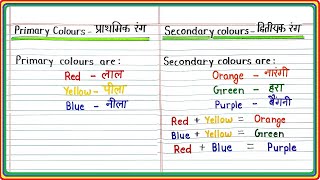 Primary Colours - प्राथमिक रंग
Primary colours are:
Red - लाल
Yellow - पीला
Blue - नीला
Secondary colours - द्वितीयक रंग
Secondary colours are:
Orange - नारंगी
Green - हरा
Purple - बैंगनी
Red + Yellow = Orange
Blue + Yellow = Green
Red + Blue = Purple